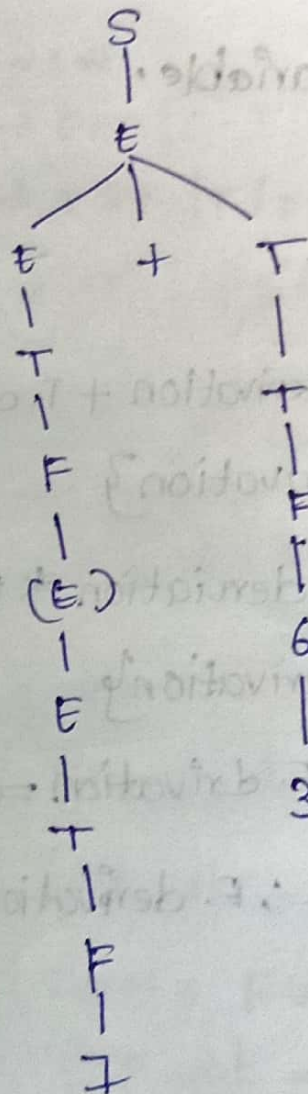 S
E
E + T
T T
F F
(E.) 6
E 3
T
F
7